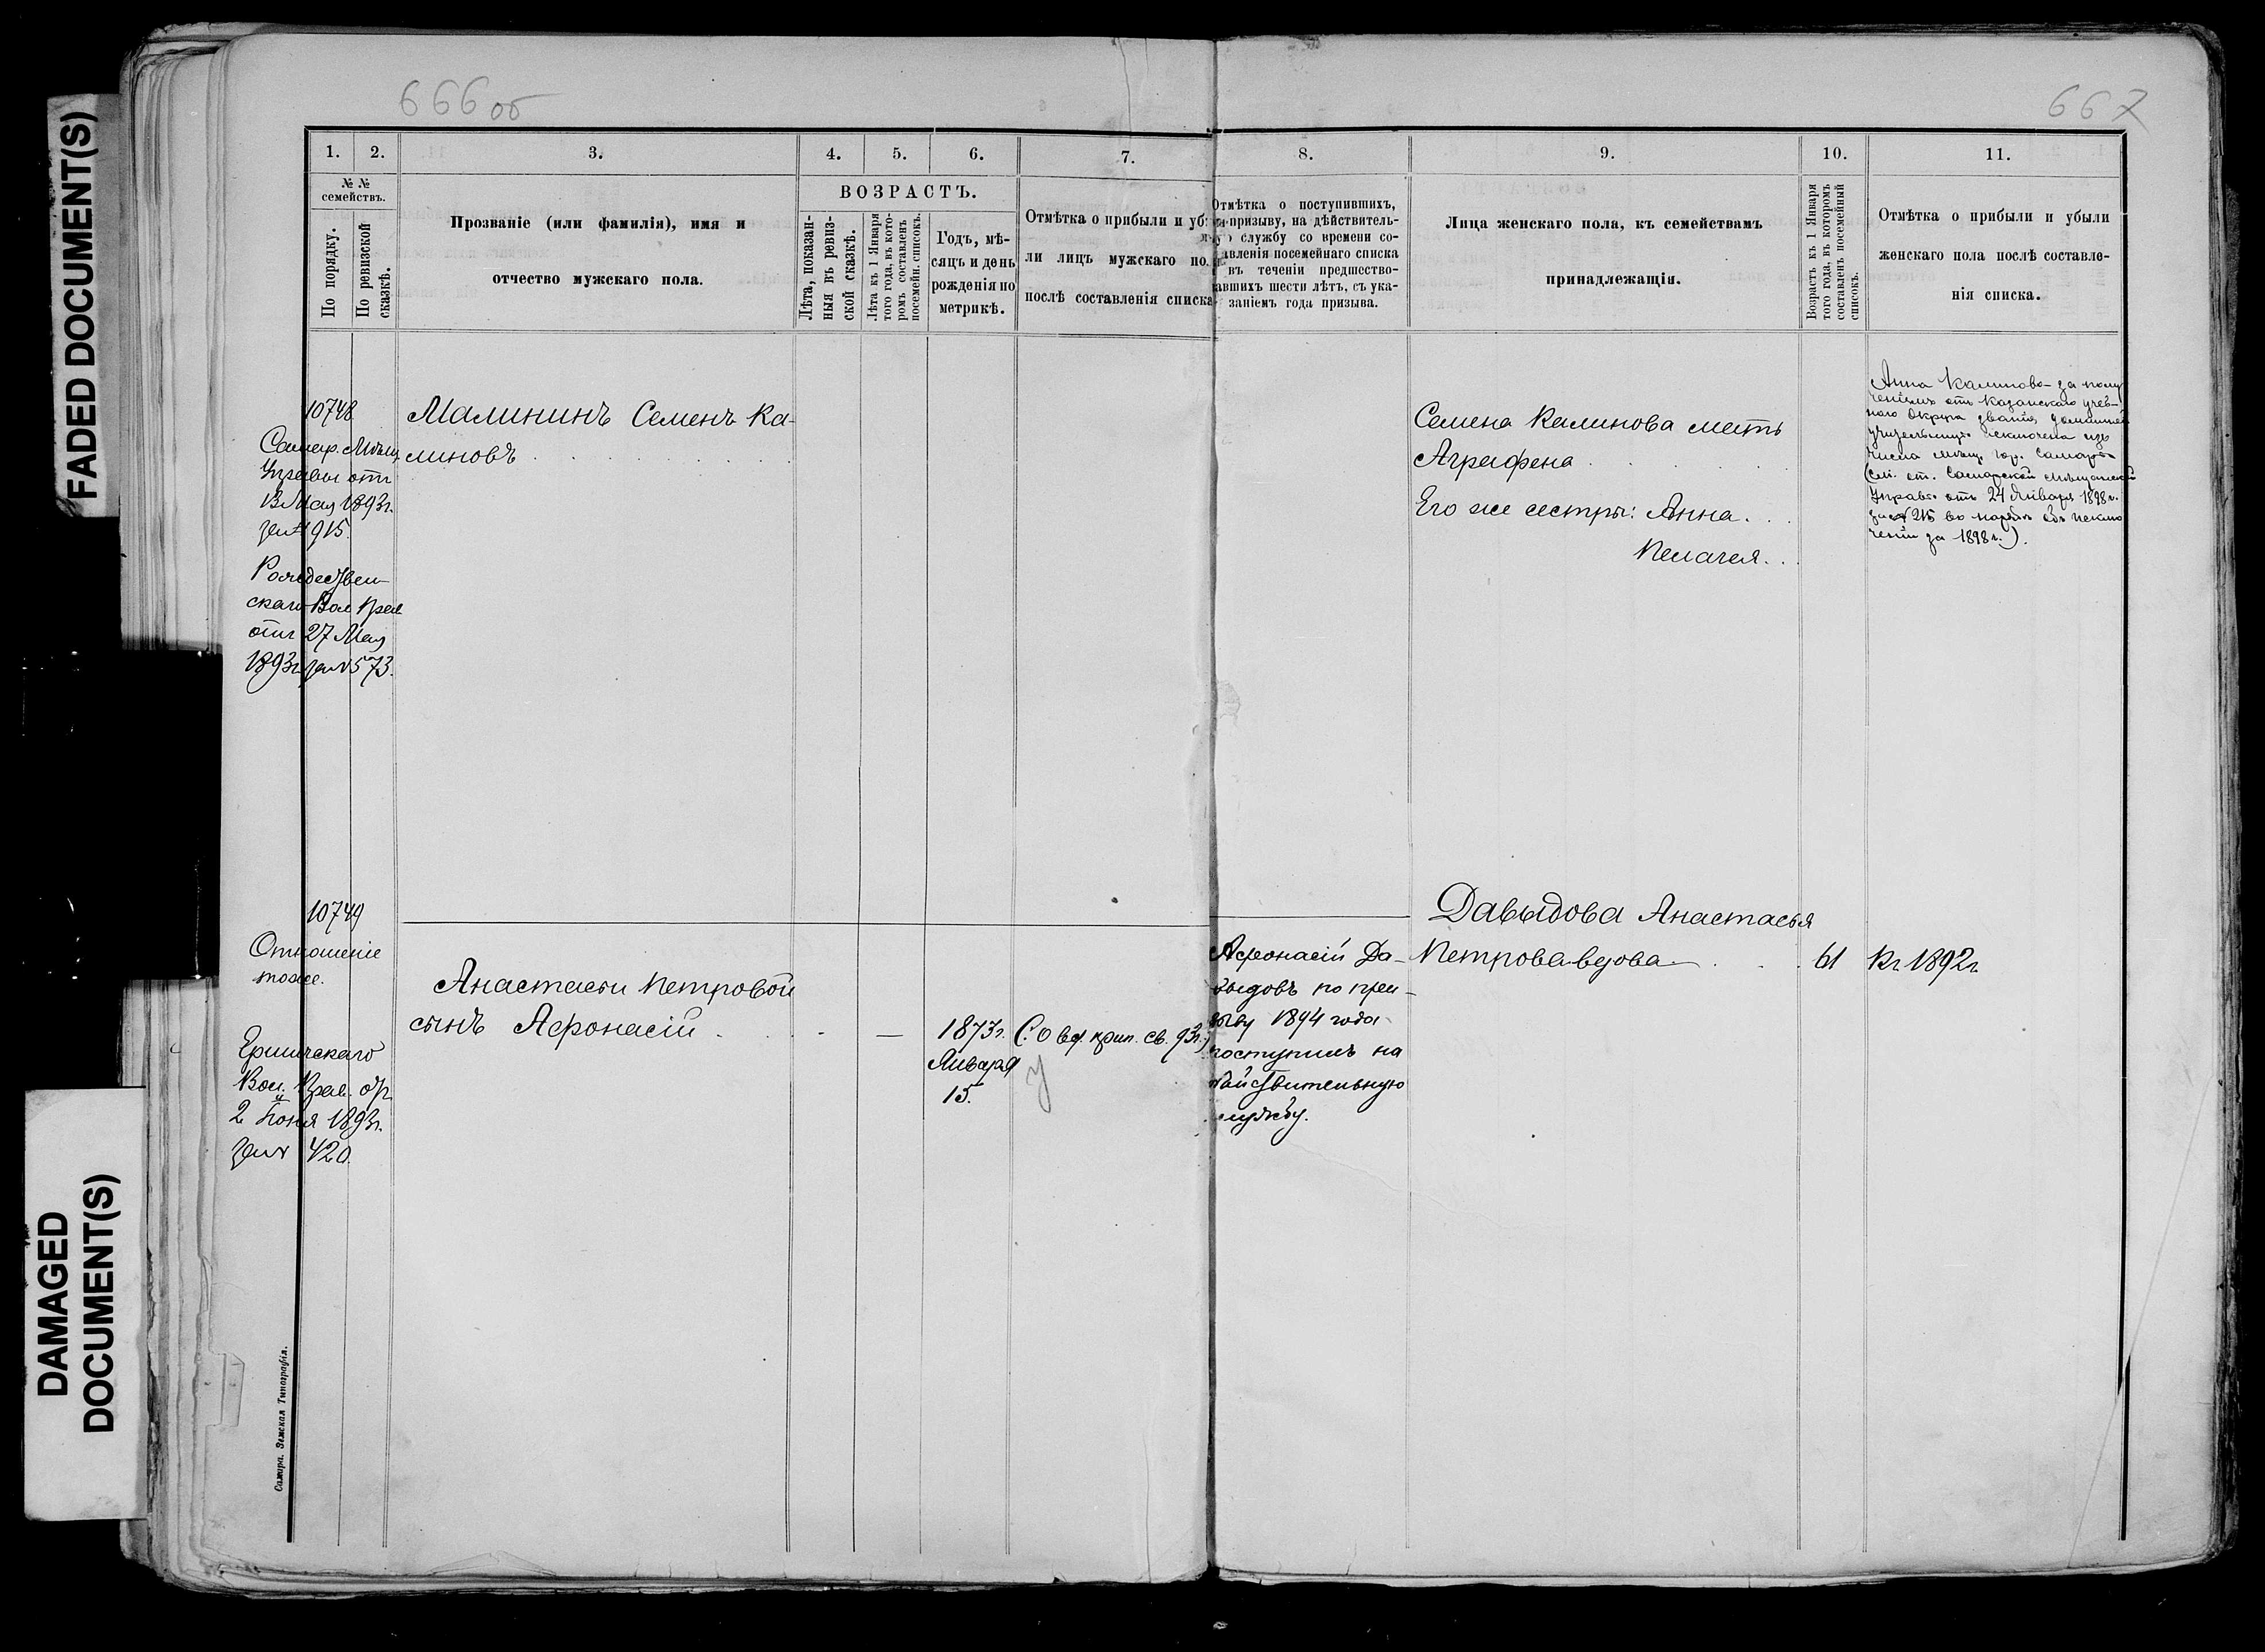 FADED DOCUMENT(S)
DAMAGED
DOCUMENT(S)
666 об
667
1. 2. 3. 4. 5. 6. 7. 8. 9. 10. 11.
№ №
семействъ.
По порядку.
По ревизской
сказкѣ.
Прозваніе (или фамилія), имя и
отчество мужскаго пола.
ВОЗРАСТЪ.
Лѣта, показан-
ныя въ ревиз-
ской сказкѣ.
Лѣта къ 1 Января
того года, въ кото-
ромъ составленъ
посемейн. списокъ.
Годъ, мѣ-
сяцъ и день
рожденія по
метрикѣ.
Отмѣтка о прибыли и уб
ли лицъ мужскаго по
послѣ составленія списка
Отмѣтка о поступившихъ,
призыву, на дѣйствитель-
службу со времени со-
авленія посемейнаго списка
въ теченіи предшество-
авшихъ шести лѣтъ, съ ука-
заніемъ года призыва.
Лица женскаго пола, къ семействамъ
принадлежащія.
Возрастъ къ 1 Января
того года, въ которомъ
составленъ посемейный
списокъ.
Отмѣтка о прибыли и убыли
женскаго пола послѣ составле-
нія списка.
10748
Самар. Мѣщ.
Управы отъ
13 Мая 1893г.
за № 915.
Рождествен-
скаго Вол. Прав.
отъ 27 Мая
1893г. за № 573.
Малининъ Семенъ Ка-
линовъ
Семена Калинова мать
Аграфена
Его же сестры: Анна
Пелагея
Анна Калинова за полу
ченіемъ отъ Казанскаго учеб-
наго Округа званія домашней
учительницы исключена изъ
числа мѣщ. гор. Самары
(См. от. Самарской мѣщанской
Управы отъ 24 Января 1898 г.
за № 215 въ нарядѣ объ исклю
ченіи за 1898 г.).
10749
Отношеніе
тоже.
Вол. Прав. от
2 Іюня 1893г.
за № 420.
Анастасіи Петровой
сынъ Афонасій
—
1873г.
Января
15.
Афонасій Да-
выдовъ по при-
зыву 1894 года
поступилъ на
дѣйствительную
службу.
Давыдова Анастасья
Петрова вдова
61
Къ 1892г.
Самара. Земская Типографія.